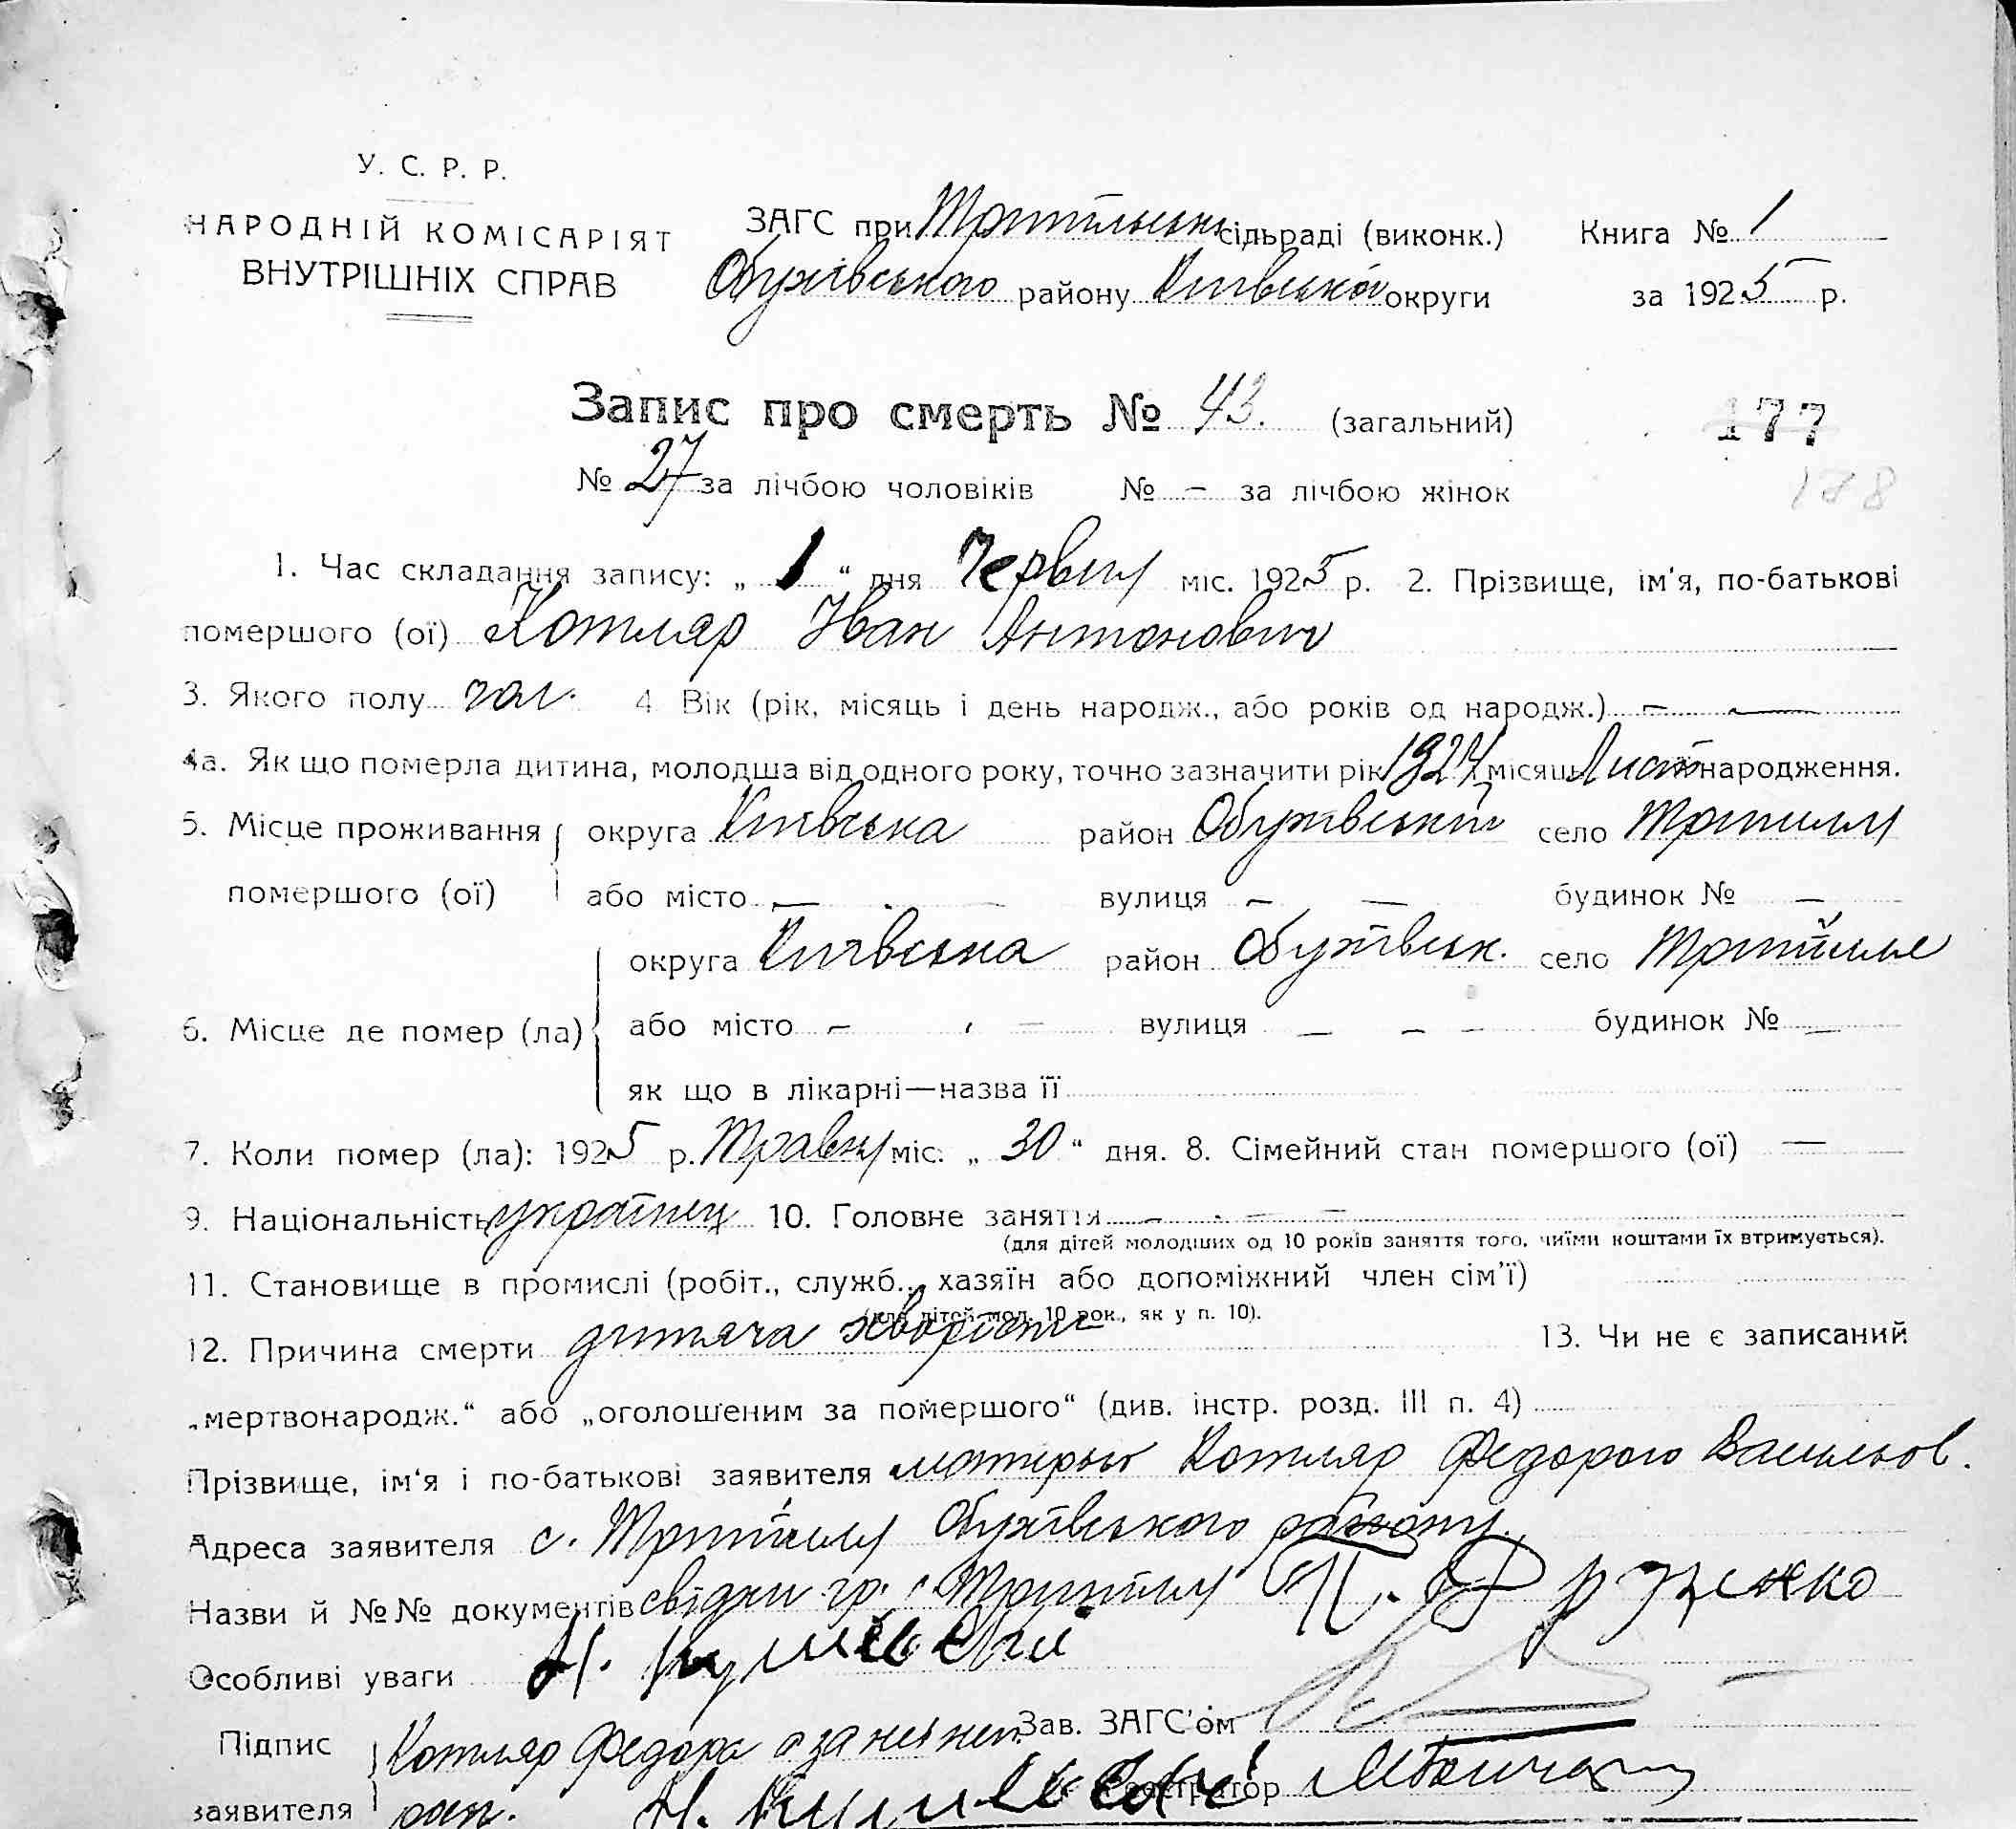 У. С. Р. Р.
НАРОДНІЙ КОМІСАРІЯТ
ВНУТРІШНІХ СПРАВ
ЗАГС при Трипільськ сільраді (виконк.)
Обухівського району Київської округи
Книга № 1
за 1925 р.
Запис про смерть № 43. (загальний)
177
№ 27 за лічбою чоловіків № – за лічбою жінок
178
1. Час складання запису: „ 1 “ дня Червня міс. 1925 р. 2. Прізвище, ім'я, по-батькові
помершого (ої) Котляр Іван Антонович
3. Якого полу чол. 4 Вік (рік, місяць і день народж., або років од народж.) – —
4а. Як що померла дитина, молодша від одного року, точно зазначити рік 1924 місяць Лист народження.
5. Місце проживання округа Київська район Обухівський село Трипілля
помершого (ої) або місто — вулиця – — будинок № –
округа Київська район Обухівськ. село Трипілле
6. Місце де помер (ла) або місто – – вулиця – – – будинок № –
як що в лікарні—назва її
7. Коли помер (ла): 1925 р. Травня міс. „ 30 “ дня. 8. Сімейний стан помершого (ої) —
9. Національність українец 10. Головне заняття – – –
(для дітей молодших од 10 років заняття того, чиїми коштами їх втримується).
11. Становище в промислі (робіт., служб., хазяїн або допоміжний член сім'ї)
(для дітей мол. 10 рок., як у п. 10).
12. Причина смерти дитяча хворість 13. Чи не є записаний
„мертвонародж.“ або „оголошеним за помершого“ (див. інстр. розд. III п. 4)
Прізвище, ім'я і по-батькові заявителя матирью Котляр Федорою Васильов.
Адреса заявителя с. Трипілля Обухівського району.
Назви й №№ документів свідки гр. с. Трипілля П.
Особливі уваги Н.
Підпис Котляр Федора а за неї неп Зав. ЗАГС'ом
заявителя рап. Н. Реєстратор